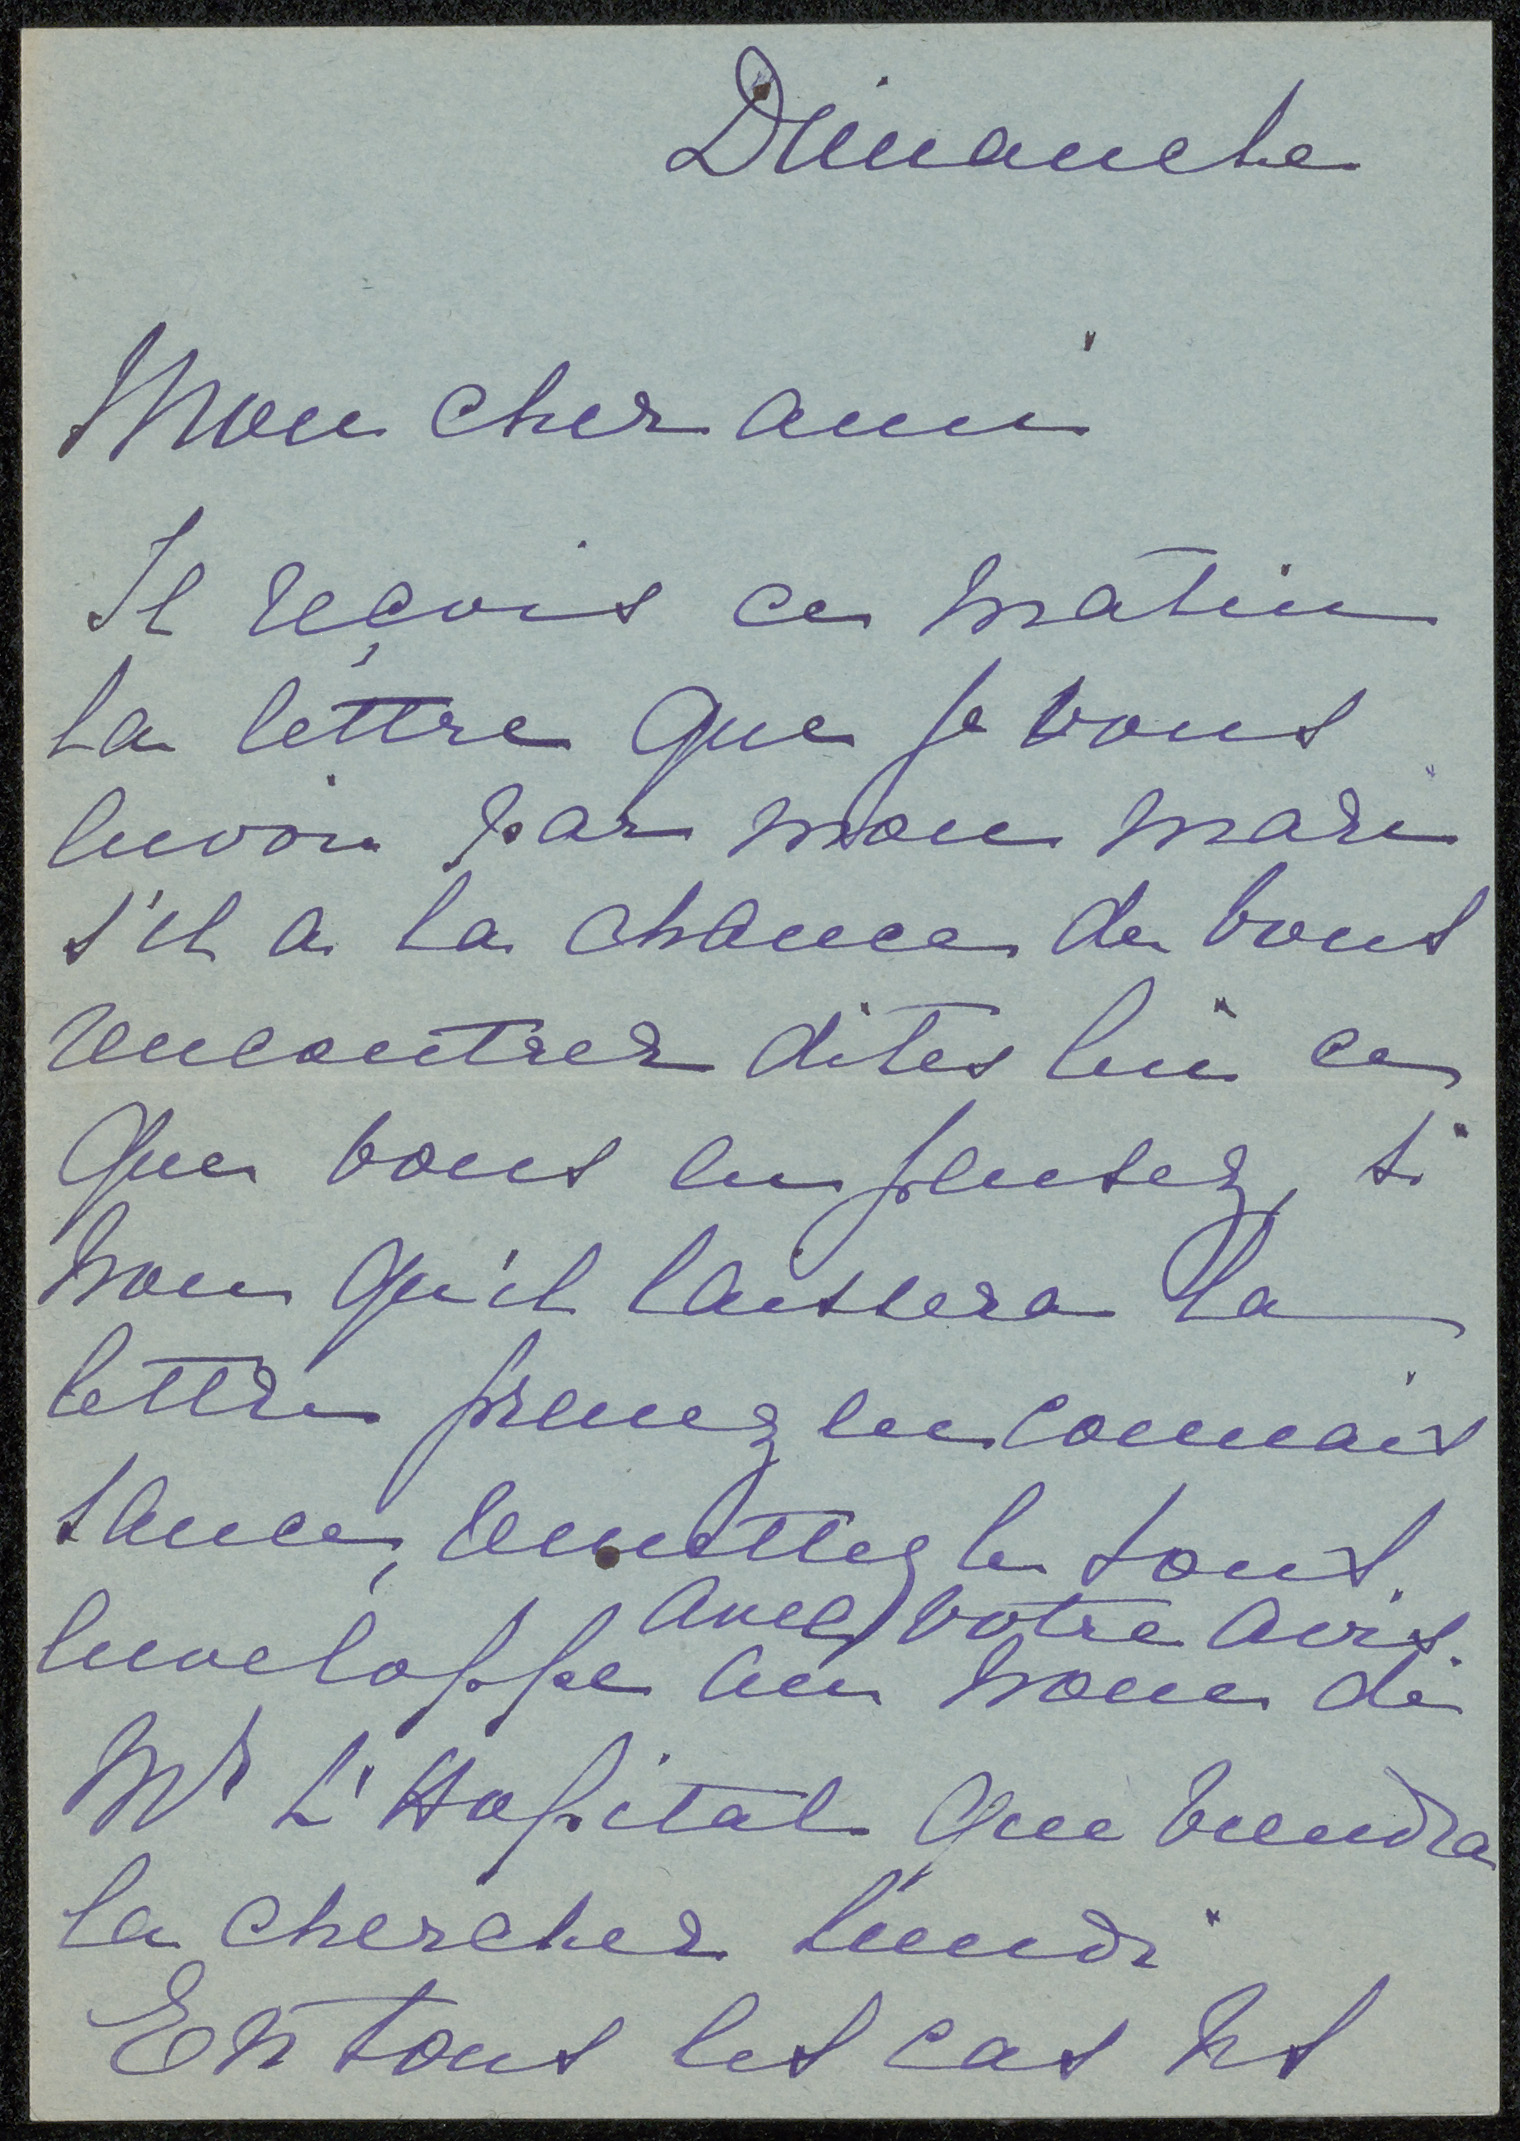 Dimanche
Mon cher ami
Je reçois ce matin
la lettre que je vous
envoie par mon mari
s'il a la chance de vous
rencontrer dites lui ce
que vous en pensez, si
non qu'il laissera la
lettre prenez en connais
sance, remettez le tout
avec votre avis
enveloppe au nom de
Mr L'Hopital que viendra
la chercher lundi
En tous les cas ns